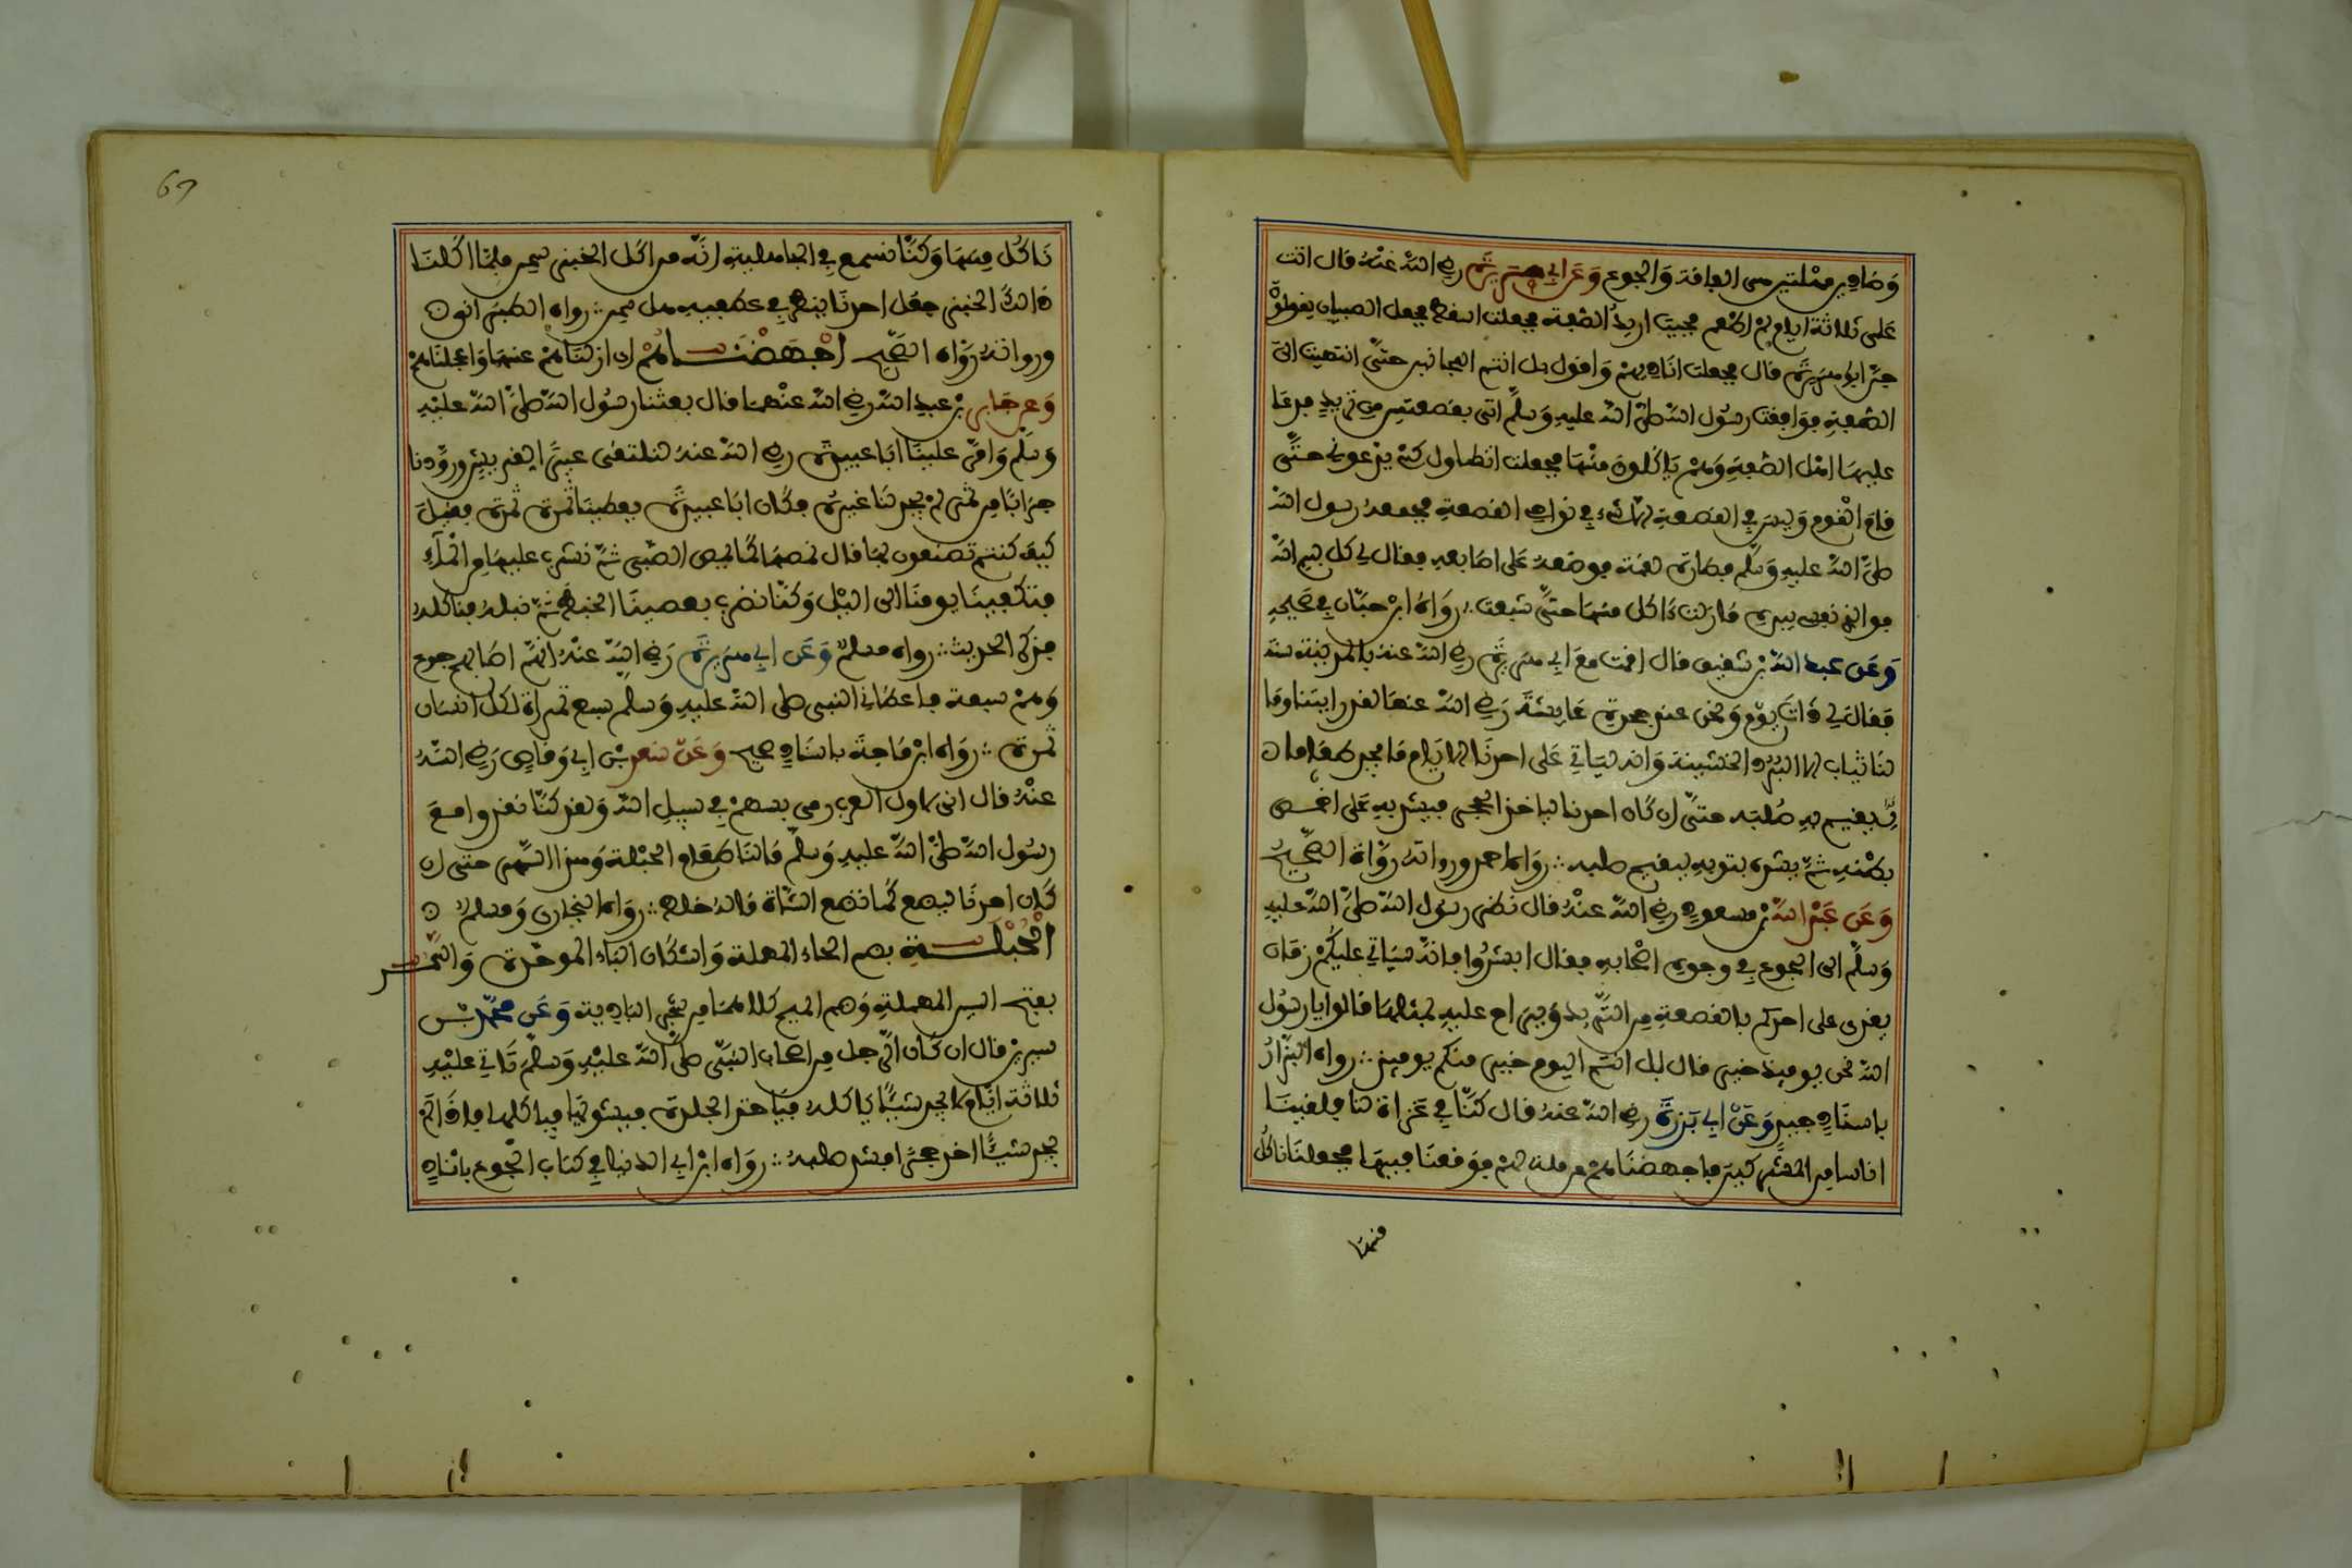 وَمَا هي ممتلتين من الفاقة وَالجوع وَعَن ابي هريرة رضي الله عَنْهُ قال اتت
عَلي ثلاثة ايام لم اطعم فجيت اريدُ الصّفة فجعلت اسقط فجعل الصبيان يقولون
جنّ ابو هريرة قال فجعلت اناديهم وَاقول بل انتم المجانين حتّى انتهينا الى
الصّفةِ فوَافقت رسُول الله صلى الله عليهِ وَسلّم اتى بقصعتين من ثريدٍ فدعَا
عليهَا اهْل الصّفةِ وَهم يَاكلون منْهَا فجعلت اتطاول كيْ يدْعوني حتّى
قام القوم وَليس في القصعةِ الا شيء في نواحي القصعةِ فجمعهُ رسول الله
صلى الله عليهِ وَسلّم فصارت لقمة فوضعهُ عَلى اصَابعهِ فقال لي كل بسم الله
فوالذي نفسي بيدهِ مَا زلت ءَاكل منهَا حتّى شبعت ∴ روَاهُ ابن حبّان في صَحيحهِ
وَعَن عبد الله بن شقيق قال اقمت معَ ابي هريرة رضي الله عنهُ بالمدينة سنة
فقال لي ذات يوْم وَنحن عند حجرة عَايشَةَ رَضي الله عنهَا لقد رايتنا وَمَا
لنا ثياب الا البُرد الخشنة وَانه ليَاتي عَلى احدنَا الايّام مَا يجد طعَاما
يقيم بهِ صُلبَه حتّى ان كَان احدنا لياخذ الحجر فيشد بهِ عَلى اخمص
بطْنهِ ثمّ يشده بثوبهِ ليقيم صلبه ∴ روَاه احمد ورواته روَاة الصَّحيح
وَعَن عَبْد الله بن مسعود رضي الله عنْهُ قال نظر رسُول الله صلى الله عليهِ
وَسلّم الى الجوع في وجوه اصْحَابهِ فقال ابشرُوا فانهُ سيَاتي عليكُم زمَان
يغدى على احدكم بالقصعةِ من الثّريد وَيراح عليهِ بمثلهَا قالوا يارسُول
الله نحن يوميذ خير قال بل انتم اليوم خير منكم يوميذ ∴ رواه البزّارُ
باسنَاد جيدٍ وَعَنْ ابي بَرزَة رضي الله عنهُ قال كنّا في غزاة لنا فلقينَا
اناسا من المشركين فاجهضنَاهمْ عن ملة لهم فوقعنَا فيهَا فجعلنَا ناكلُ
منهَا
67
نَاكل منهَا وَكنّا نسمع في الجاهليةِ انّه من اكل الخبز سمن فلمّا اكلنَا
ذالك الخبز جعل احدنَا ينظر في عطفيهِ هل سمن ∴ رواه الطبرَاني
ورواتهُ روَاة الصَّحيح اجْهَضْنَاهُمْ اي ازلنَاهمْ عنهَا وَاعجلنَاهمْ
وَعن جَابر بن عبد الله رضي الله عنْهما قال بعثنا رسُول الله صلى الله عليْهِ
وَسلّم وَامّر علينَا ابَا عبيدة رضي الله عنهُ نتلقى عيرًا لقريش وزوّدنا
جرَابًا من تمر لمْ يجد لنَا غيرهُ فكَان ابَا عبيدة يعطينَا تمرة تمرة فقيل
كيف كنتم تصنعون بهَا قال نمصهَا كمَا يمص الصّبي ثمّ نشرب عليهَا من الْمَآءِ
فتكفينَا يومنَا الى اليْل وَكنّا نضرب بعصينَا الخبط ثمّ نبلهُ فناكلهُ
فذكر الحديث ∴ رواه مسلم وَعَن ابي هريرة رَضي الله عنْهُ انّهم اصَابهم جوع
وَهمْ سبعة فاعطاني النبي صلى الله عليهِ وَسلم سبع تمرات لكل انسان
تمرة ∴ روَاه ابن مَاجة باسنَاد صحيح وَعَنْ سعد بن ابي وَقاص رَضي اللهُ
عنْهُ قال اني لاول العرب رمى بسهمْ في سبيل الله وَلقد كنّا نغزوا معَ
رسُول الله صلىّ الله عليهِ وَسلّم مَالنَا طعَام الا الحبْلة وَهذا السّمر حتى ان
كَان احدنَا ليضع كمَا تضع الشّاة مالهُ خلط ∴ روَاه البخاري وَمسلم
الْحُبْلَةِ بضم الحاء المهملة وَاسْكَان البَاء الموحّدة وَالسّمر
بفتح السين المهملةِ وَضم الميم كلاهمَا من شجر البَادِية وَعَن محمّد بن
سيرين قال ان كَان الرّجل من اصحاب النبّي صلىّ الله عليْهِ وَسلّم تَاتي عليْهِ
ثلاثة ايّام لا يجد شيئًا يَاكلهُ فيَاخذ الجلدة فيشويهَا فياكلها فاذَا لمْ
يجد شيئًا اخذ حجرًا فشد صلبهُ ∴ روَاه ابن ابي الدنيا في كتاب الْجُوع باسْنَاد